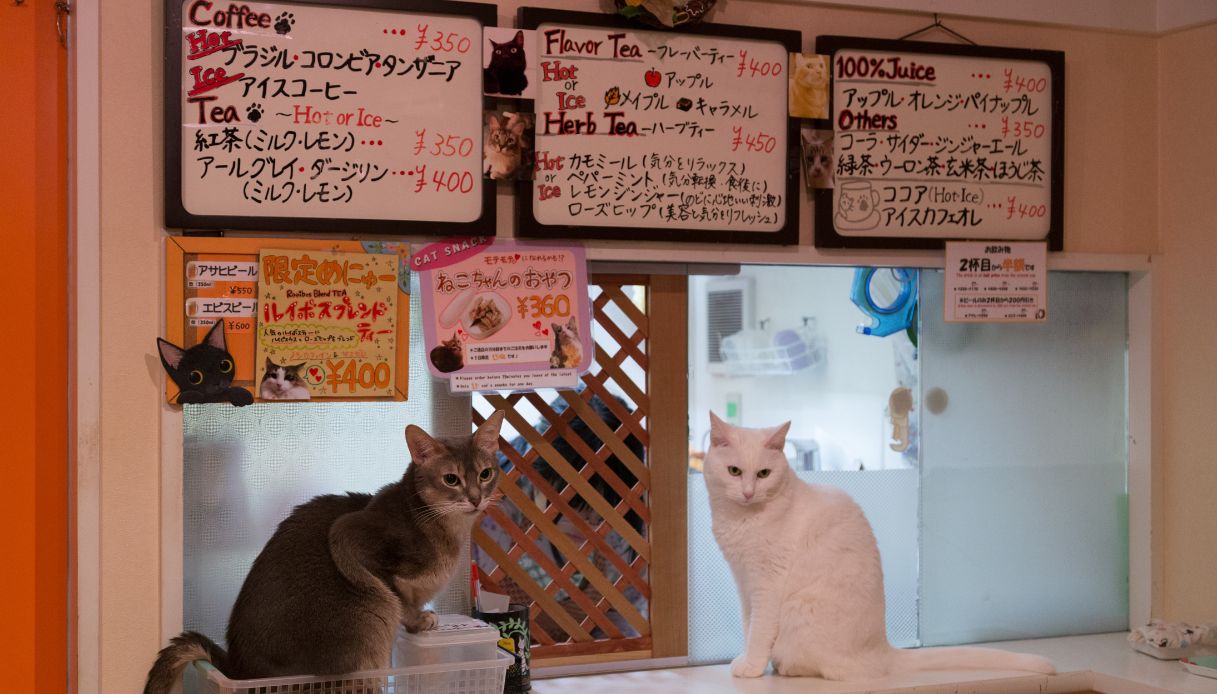 Coffee
Hot
... ¥350
ブラジル・コロンビア・タンザニア
Ice
アイスコーヒー
Tea
~Hot or Ice~
紅茶(ミルク・レモン)... ¥350
アールグレイ・ダージリン... ¥400
(ミルク・レモン)
Flavor Tea ~フレーバーティー
¥400
Hot or Ice
アップル
メイプル
キャラメル
Herb Tea ~ハーブティー
¥450
Hot or Ice
カモミール(気分をリラックス)
ペパーミント(気分転換・食後に)
レモンジンジャー(のどに心地いい刺激)
ローズヒップ(美容と気分をリフレッシュ)
100%Juice
... ¥400
アップル・オレンジ・パイナップル
Others
... ¥350
コーラ・サイダー・ジンジャーエール
緑茶・ウーロン茶・玄米茶・ほうじ茶
ココア(Hot・Ice)
アイスカフェオレ
... ¥400
アサヒビール
350ml
¥550
エビスビール
350ml
¥600
限定めにゅー
Rooibos Blend TEA
ルイボスブレンド
ティー
¥400
CAT SNACK
モテモテになれるかも!?
ねこちゃんのおやつ
¥360
お飲み物
2杯目から半額です